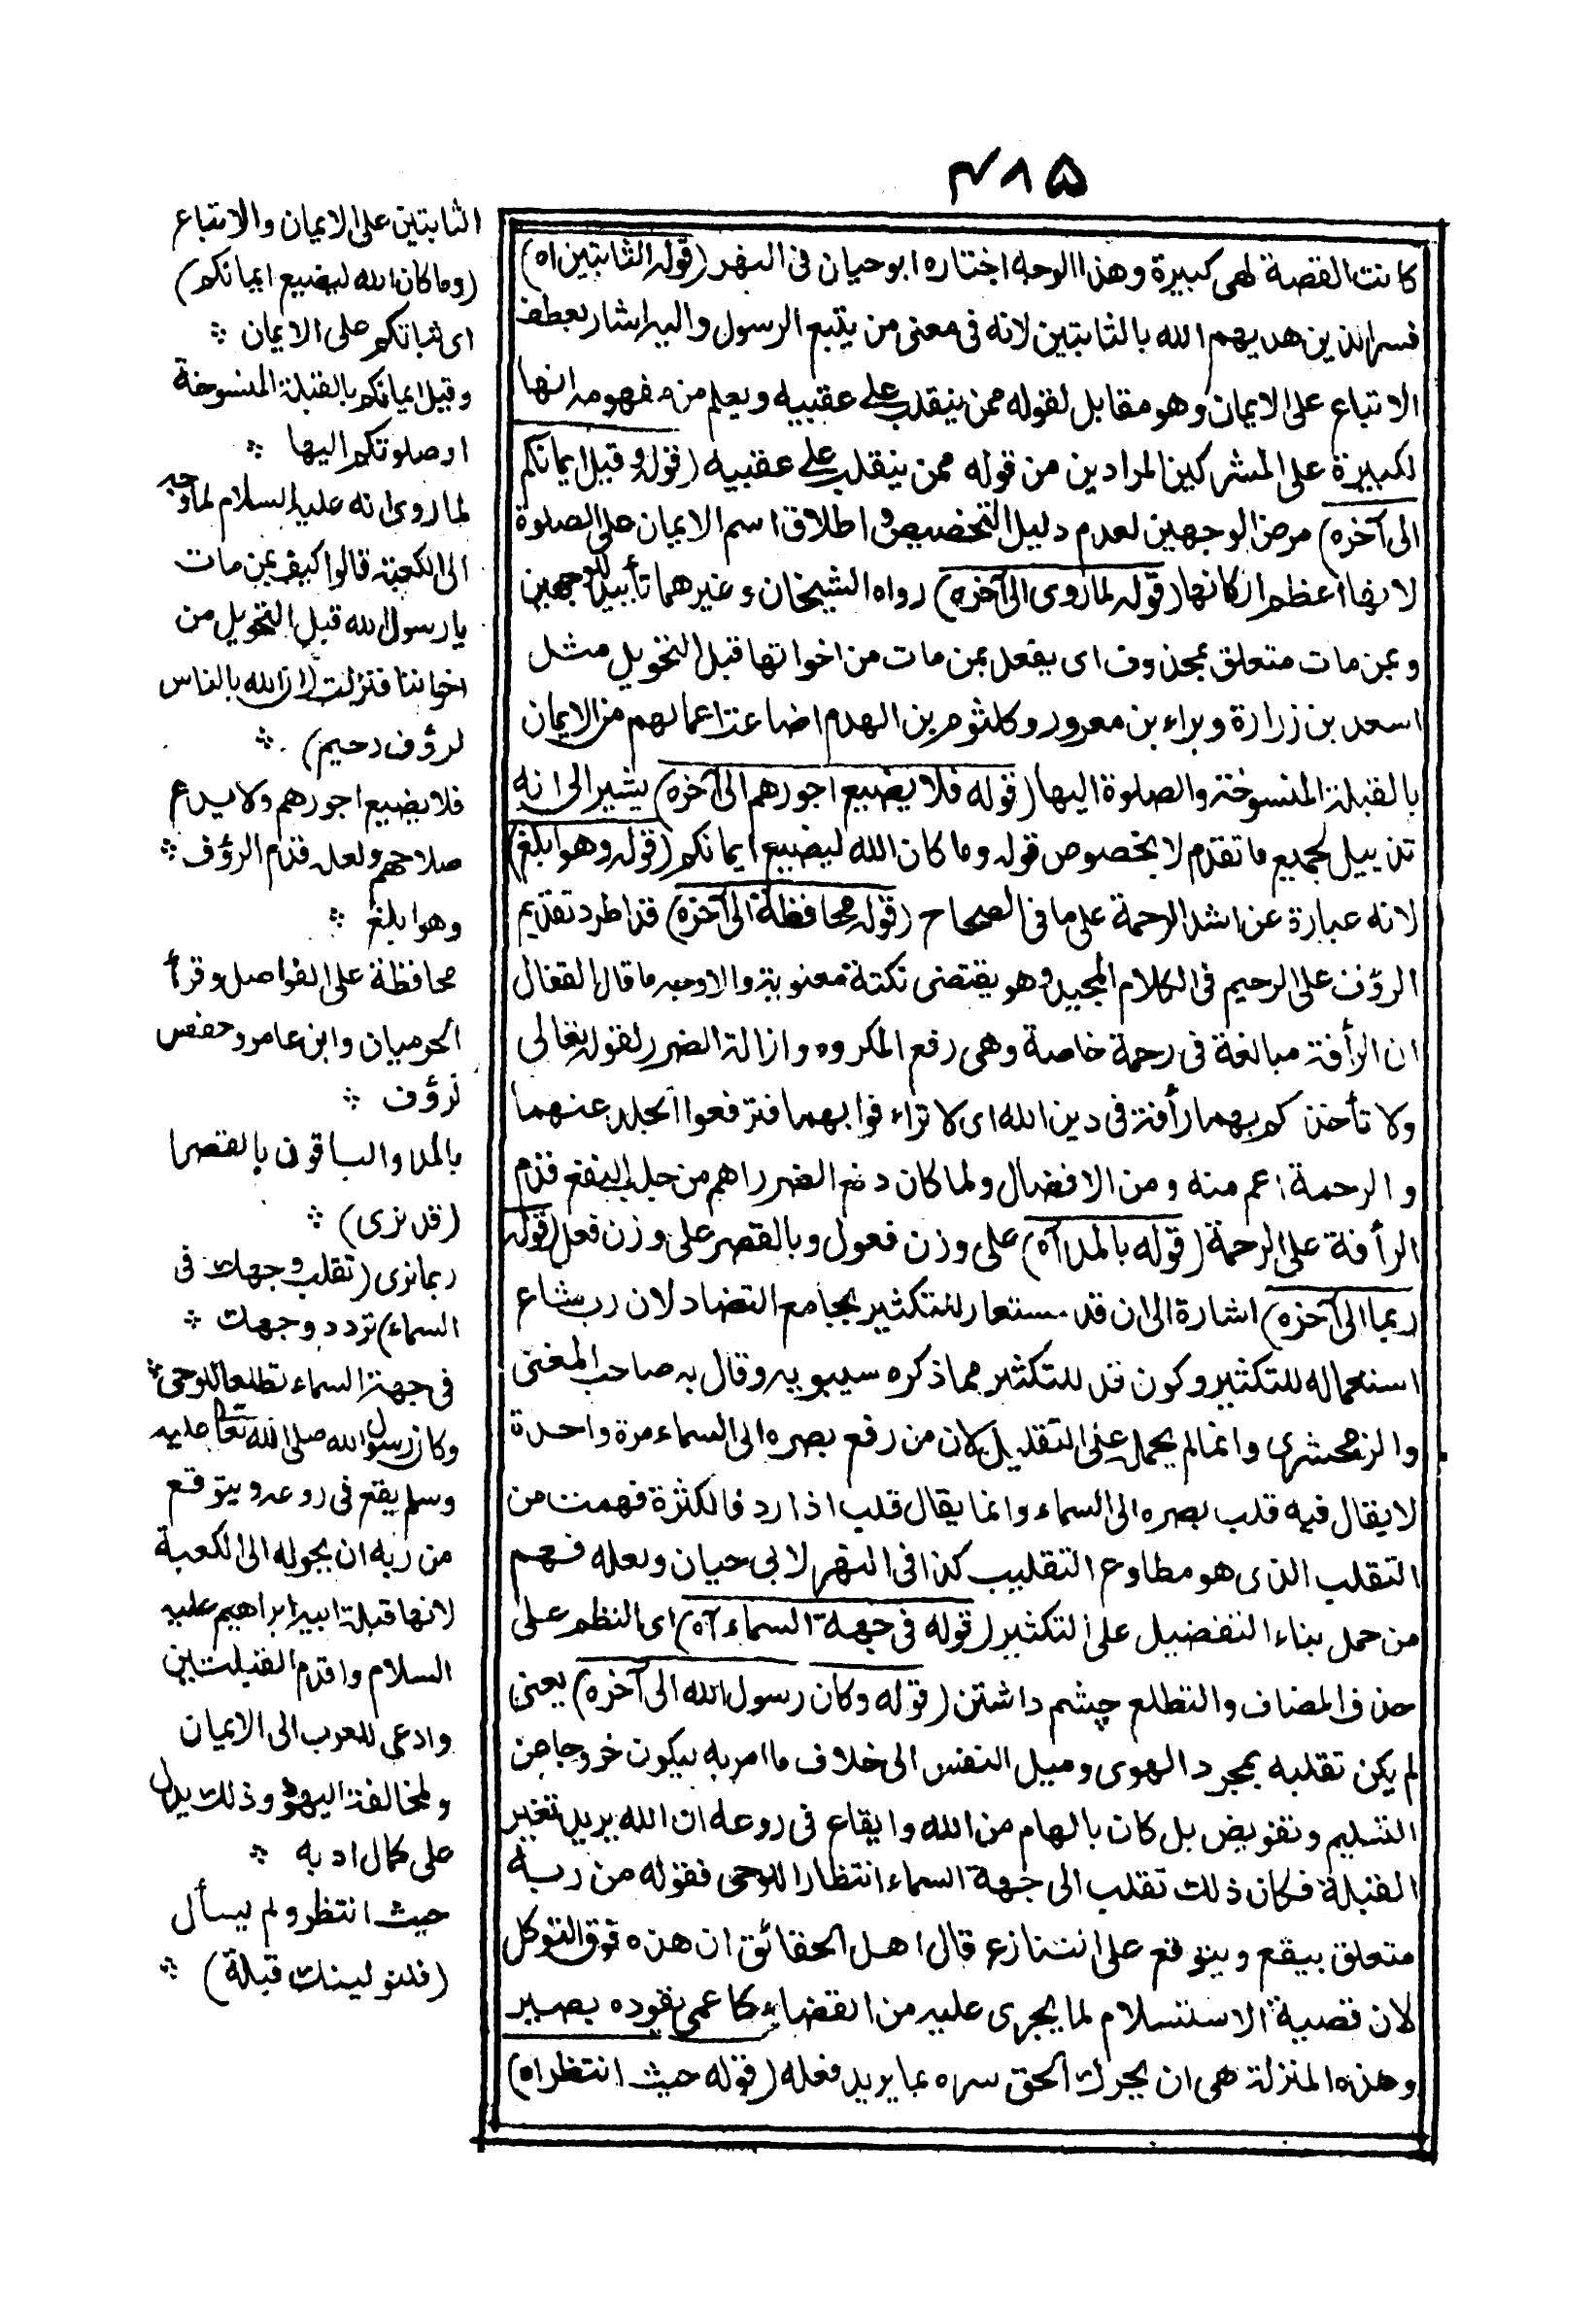 ٤٨٥
كانت القصة لهى كبيرة وهذا الوجه اختاره ابو حيان فى النهر (قوله الثابتين اه)
فسر الذين هديهم الله بالثابتين لانه فى معنى من يتبع الرسول واليه اشار بعطف
الاتباع على الايمان وهو مقابل لقوله ممن ينقلب على عقبيه ويعلم من مفهومه انها
لكبيرة على المشركين المرادين من قوله ممن ينقلب على عقبيه (قوله وقيل ايمانكم
الى آخره) مرض الوجهين لعدم دليل التخصيص و اطلاق اسم الايمان على الصلوة
لانها اعظم اركانها (قوله لما روى الى آخره) رواه الشيخان وغيرهما تأييد للوجهين
وبمن مات متعلق بمحذوف اى يفعل بمن مات من اخواتها قبل التحويل مثل
اسعد بن زرارة وبراء بن معرور وكلثوم بن الهدم اضاعت اعمالهم من الايمان
بالقبلة المنسوخة والصلوة اليها (قوله فلا يضيع اجورهم الى آخره) يشير الى انه
تذييل لجميع ما تقدم لا بخصوص قوله وما كان الله ليضيع ايمانكم (قوله وهو ابلغ)
لانه عبارة عن اشد الرحمة على ما فى الصحاح (قوله محافظة الى آخره) قد اطرد تقديم
الرؤف على الرحيم فى الكلام المجيد وهو يقتضى نكتة معنوية والاوجه ما قال القفال
ان الرأفة مبالغة فى رحمة خاصة وهى رفع المكروه وازالة الضرر لقوله تعالى
ولا تأخذكم بهما رأفة فى دين الله اى لا تراءفوا بهما فترفعوا الجلد عنهما
والرحمة اعم منه ومن الافضال ولما كان دفع الضرر اهم من جلب النفع قدم
الرأفة على الرحمة (قوله بالمد آه) على وزن فعول وبالقصر على وزن فعل (قوله
ربما الى آخره) اشارة الى ان قد مستعار للتكثير بجامع التضاد لان رب شاع
استعماله للتكثير وكون قد للتكثير مما ذكره سيبويه وقال به صاحب المغنى
والزمحشرى وانما لم يحمل على التقليل لان من رفع بصره الى السماء مرة واحدة
لا يقال فيه قلب بصره الى السماء وانما يقال قلب اذا ردد فالكثرة فهمت من
التقلب الذى هو مطاوع التقليب كذا فى النهر لابى حيان ولعله فهم
من حمل بناء التفضيل على التكثير (قوله فى جهة السماء آه) اى النظم على
حذف المضاف والتطلع چشم داشتن (قوله وكان رسول الله الى آخره) يعنى
لم يكن تقلبه بمجرد الهوى وميل النفس الى خلاف ما امر به ليكون خروجا عن
التسليم وتفويض بل كان بالهام من الله وايقاع فى روعه ان الله يريد تغيير
القبلة فكان ذلك تقلب الى جهة السماء انتظارا للوحى فقوله من ربه
متعلق بيقع ويتوقع على التنازع قال اهل الحقائق ان هذه فوق التوكل
لان قصية الاستسلام لما يجرى عليه من القضاء كاعمى يقوده بصير
وهذه المنزلة هى ان يحرك الحق سره بما يريد فعله (قوله حيث انتظر اه)
الثابتين على الايمان والاتباع
(وما كان الله ليضيع ايمانكم)
اى ثباتكم على الايمان
وقيل ايمانكم بالقبلة المنسوخة
او صلوتكم اليها
لما روى انه عليه السلام لما وجه
الى الكعبة قالوا كيف بمن مات
يا رسول الله قبل التحويل من
اخواننا فنزلت (ان الله بالناس
لرؤف رحيم)
فلا يضيع اجورهم ولا يدع
صلاحهم ولعله قدم الرؤف
وهو ابلغ
محافظة على الفواصل وقرأ
الحرميان وابن عامر وحفص
لرؤف
بالمد والباقون بالقصر
(قد نرى)
ربما نرى (تقلب وجهك فى
السماء) تردد وجهك
فى جهة السماء تطلعا للوحى
وكان رسول الله صلى الله تعا عليه
وسلم يقع فى روعه ويتوقع
من ربه ان يحوله الى الكعبة
لانها قبلة ابيه ابراهيم عليه
السلام واقدم القبلتين
وادعى للعرب الى الايمان
ولمخالفة اليهود وذلك يدل
على كمال ادبه
حيث انتظر ولم يسأل
(فلنولينك قبلة)